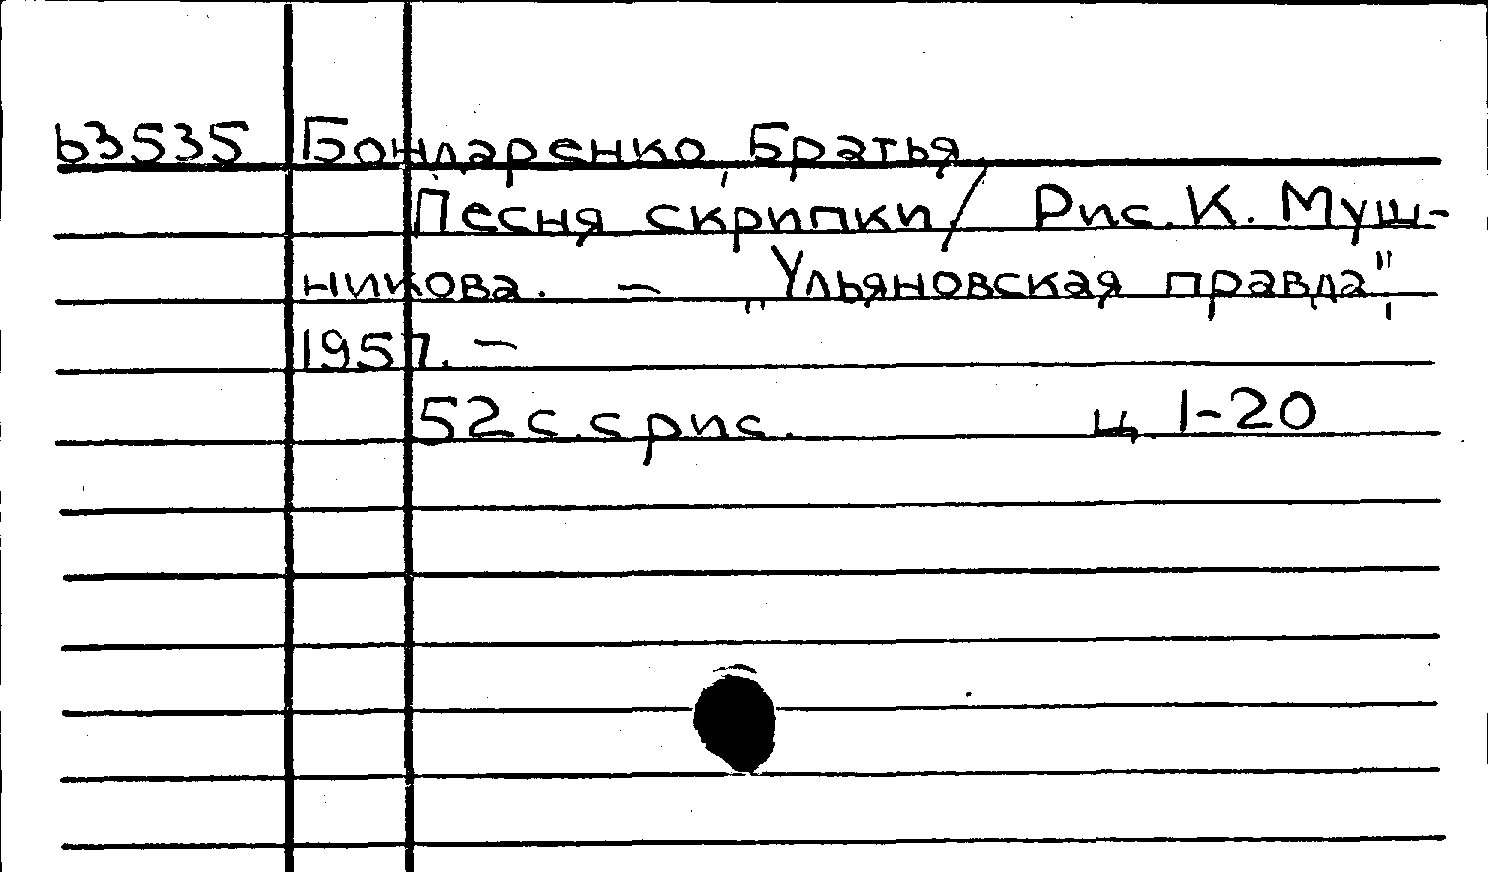 ь3535 Бондаренко, Братья
Песня скрипки / Рис. К. Муш-
никова. – „Ульяновская правда",
1957. –
52 с. с рис. ц. 1-20